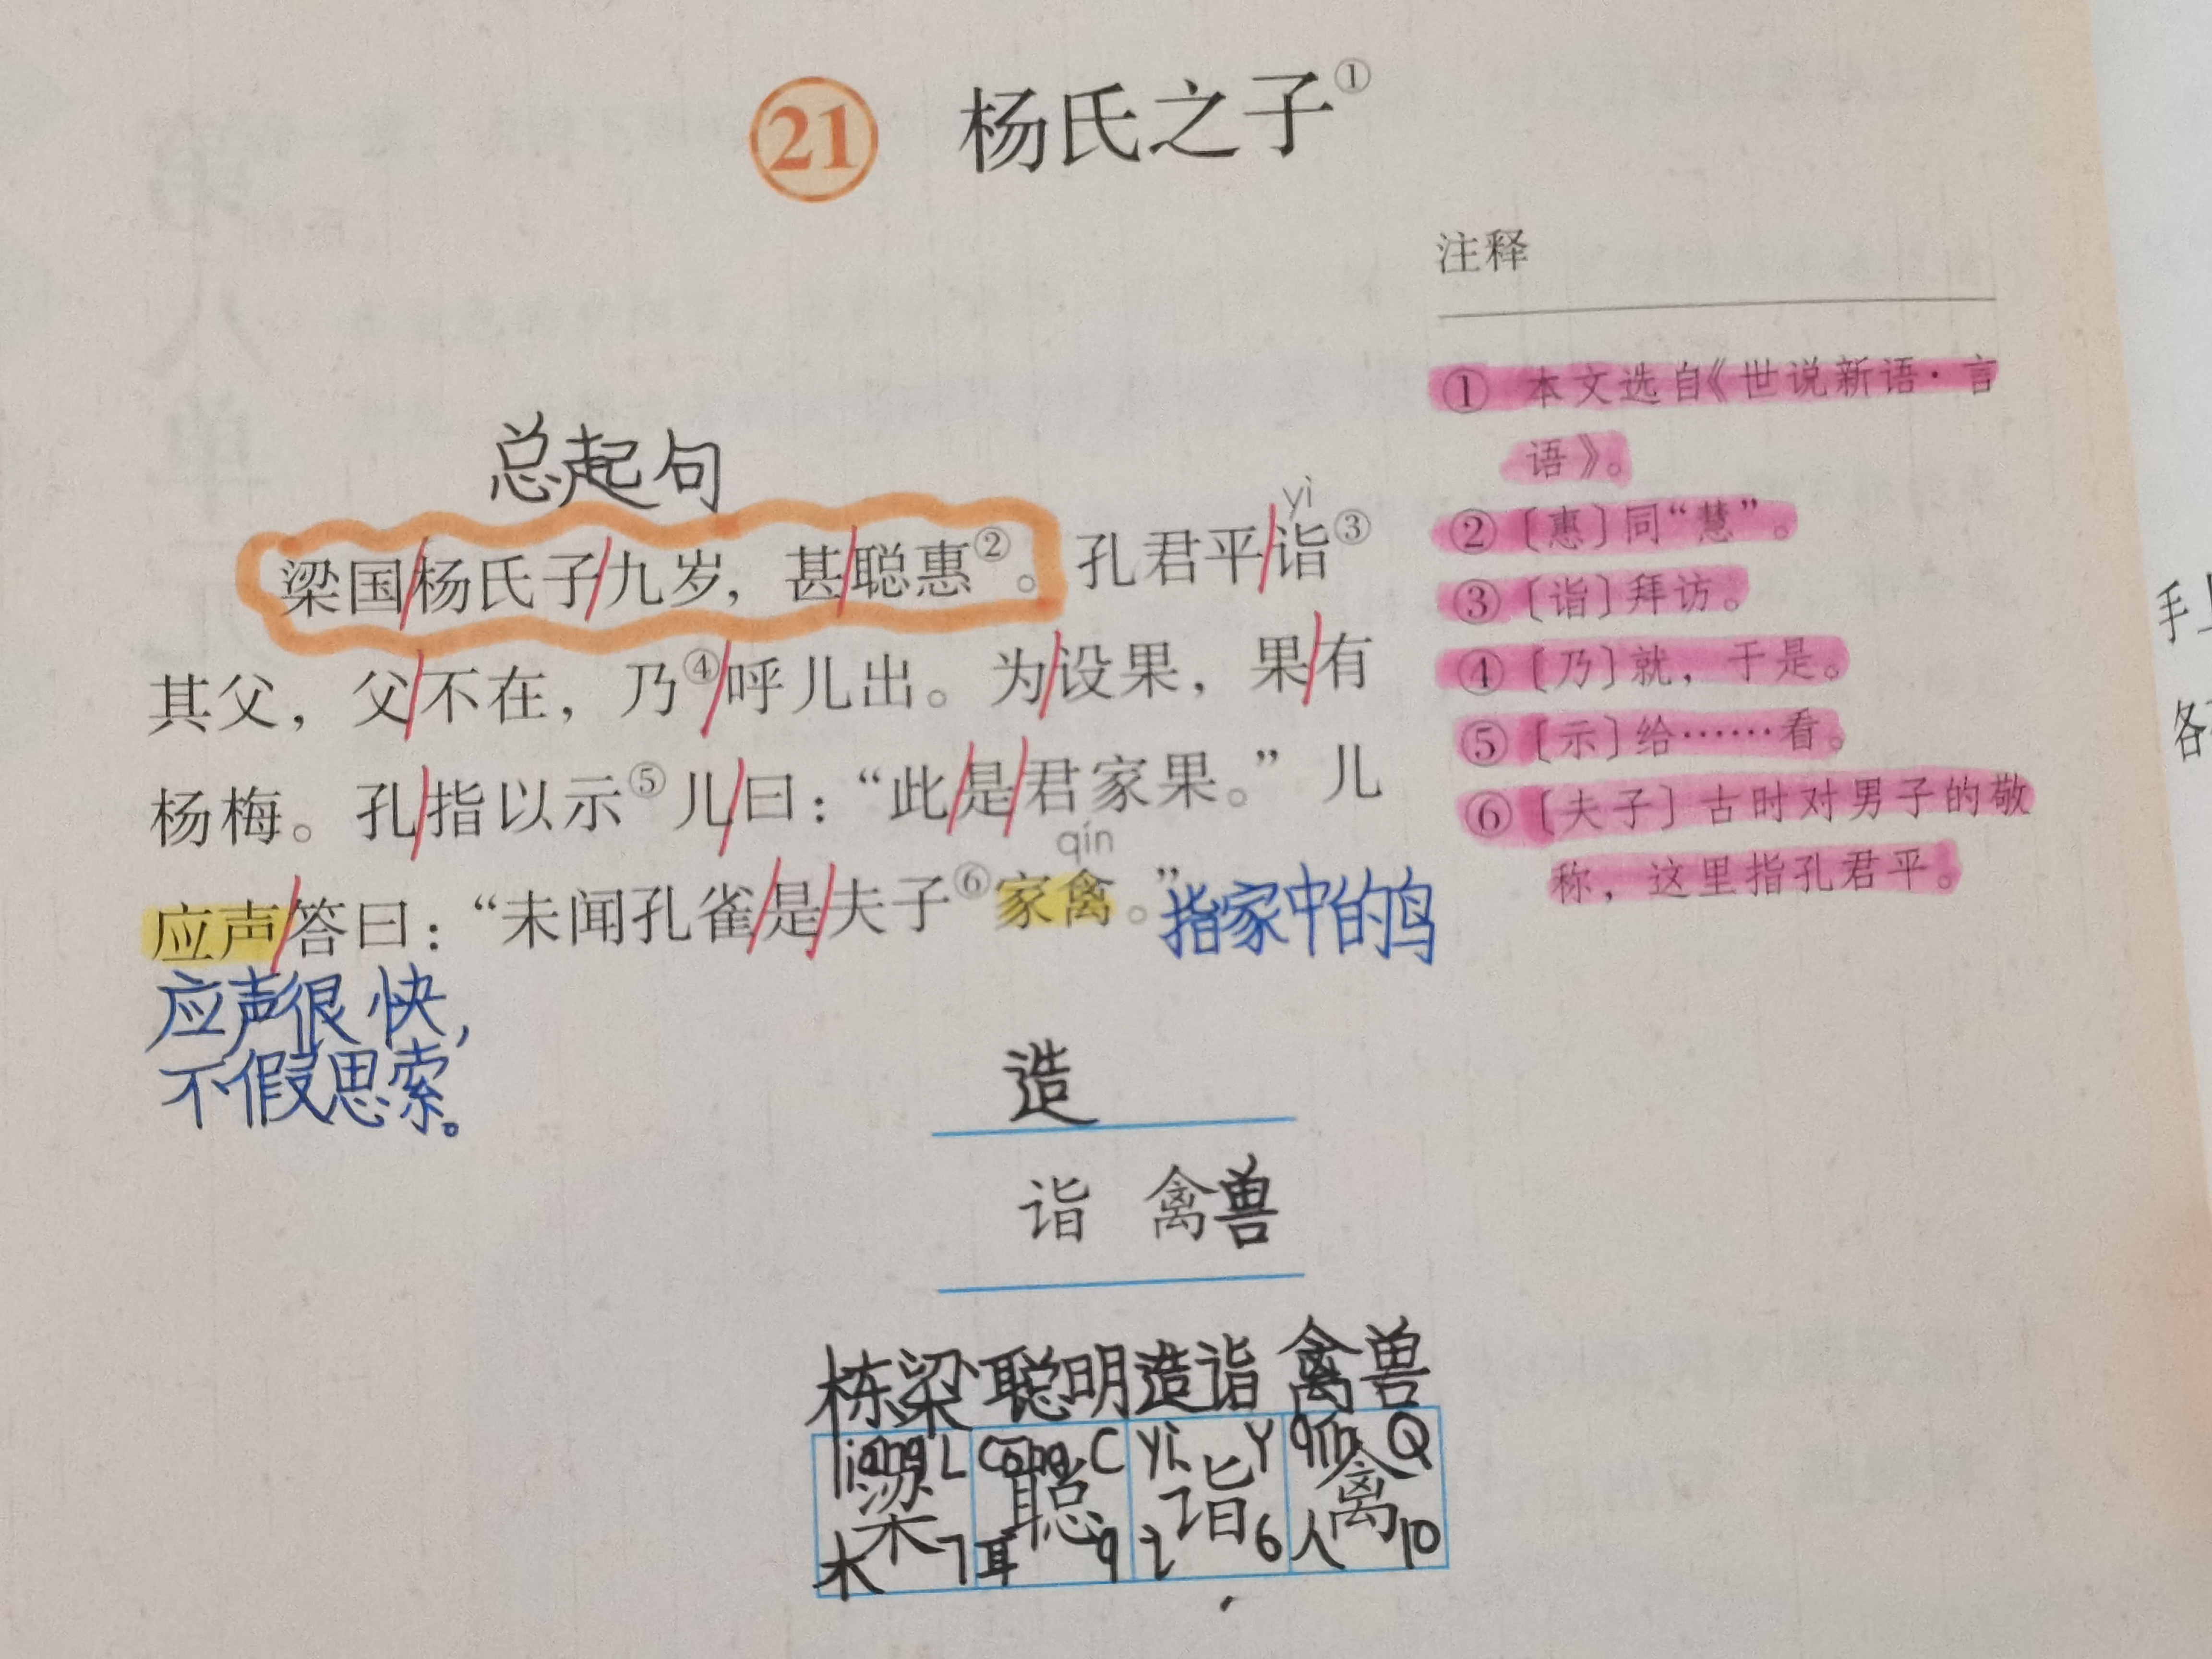 21 杨氏之子①
注释
① 本文选自《世说新语·言
语》。
②〔惠〕同“慧”。
③〔诣〕拜访。
④〔乃〕就，于是。
⑤〔示〕给……看。
⑥〔夫子〕古时对男子的敬
称，这里指孔君平。
总起句
yì
梁国/杨氏子/九岁，甚/聪惠②。孔君平/诣③
其父，父/不在，乃④/呼儿出。为/设果，果/有
杨梅。孔/指以示⑤儿/曰：“此/是/君家果。”儿
qín
应声/答曰：“未闻孔雀/是/夫子⑥家禽。”指家中的鸟
应声很快，
不假思索。
造
诣 禽兽
栋梁 聪明 造诣 禽兽
liang L cong C yì Y qin Q
梁 聪 诣 禽
木 7 耳 9 讠 6 人 10
手上
各